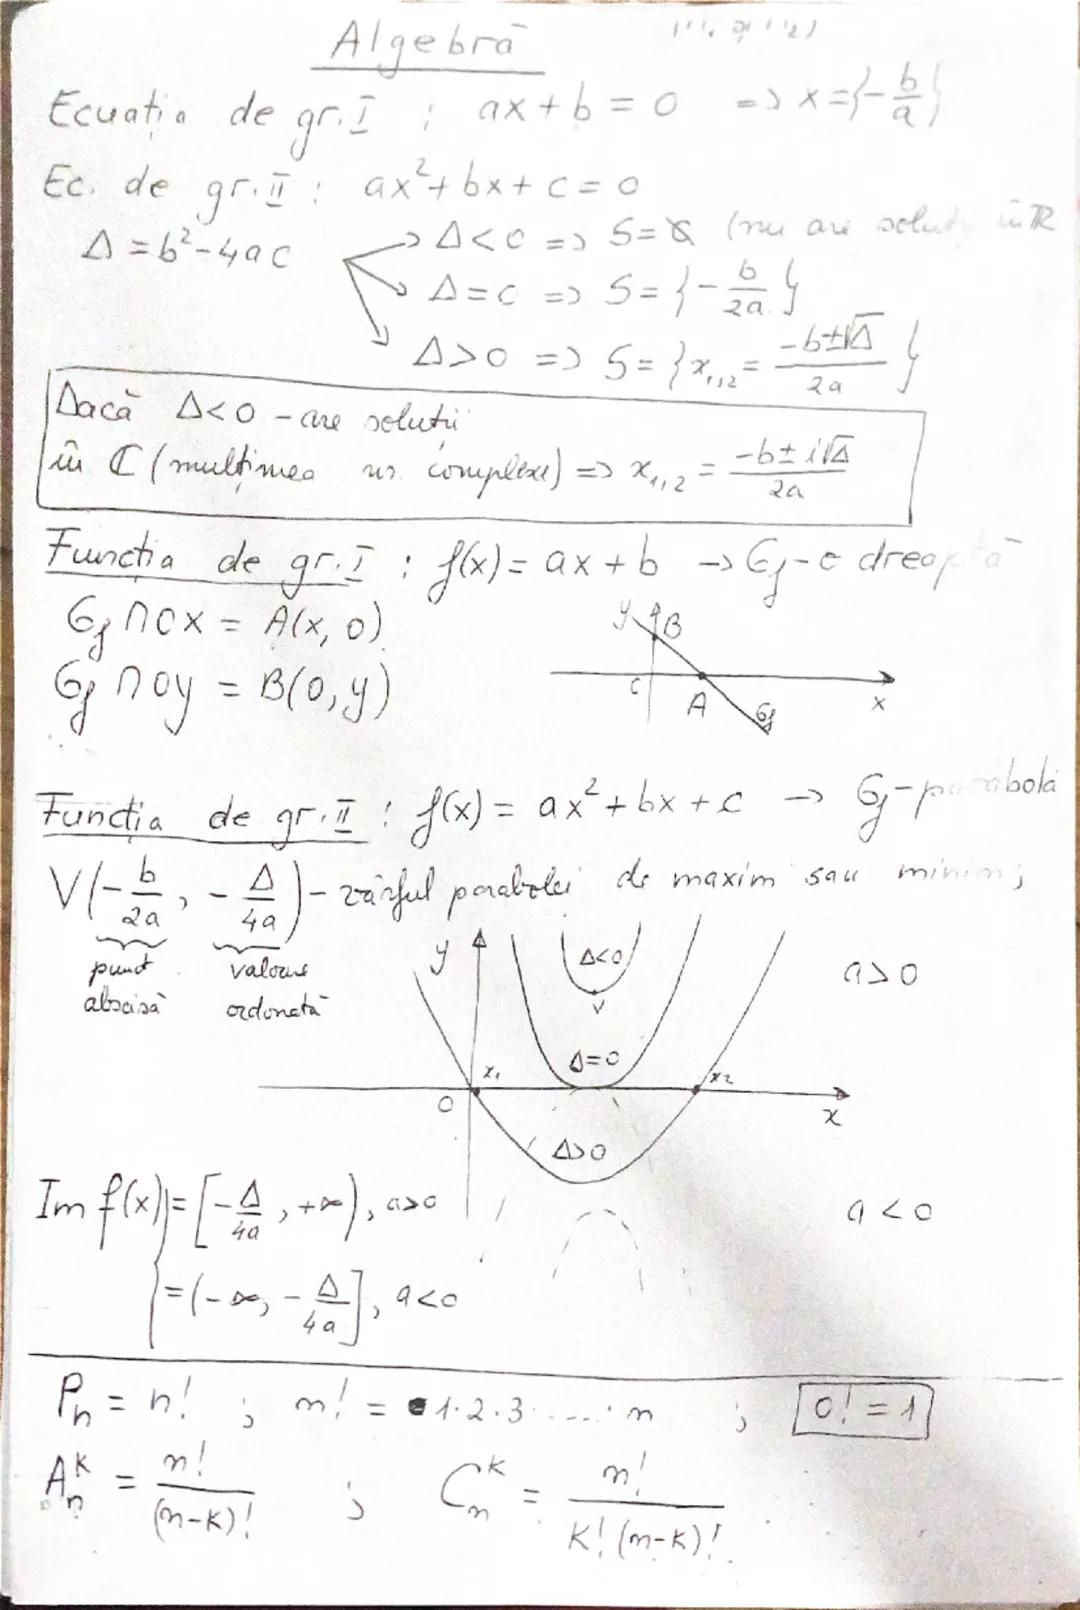 Algebră
Ecuația de gr. I : ax + b = 0 => x = {-b/a}
Ec. de gr. II : ax² + bx + c = 0
Δ = b² - 4ac
→ Δ < 0 => S = ∅ (nu are soluț în ℝ
→ Δ = 0 => S = {-b/2a}
→ Δ > 0 => S = {x₁,₂ = (-b±√Δ)/2a}
Dacă Δ < 0 - are soluții
în ℂ (mulțimea nr. complexe) => x₁,₂ = (-b ± i√Δ)/2a
Funcția de gr. I : f(x) = ax + b → Gf - o dreaptă
Gf ∩ Ox = A(x, 0)
Gf ∩ Oy = B(0, y)
y B
O A Gf x
Funcția de gr. II : f(x) = ax² + bx + c → Gf - parabolă
V(-b/2a, -Δ/4a) - vârful parabolei de maxim sau minim;
punct valoare
abscisă ordonată
y Δ<0 a > 0
V
Δ=0
x₁ x₂
O x
Δ>0
Im f(x) = [-Δ/4a, +∞), a>0 a < 0
= (-∞, -Δ/4a], a<0
Pn = n! ; n! = 1·2·3·....·n ; 0! = 1
Aₙᵏ = n!/(n-k)! ; Cₙᵏ = n!/k!(n-k)!